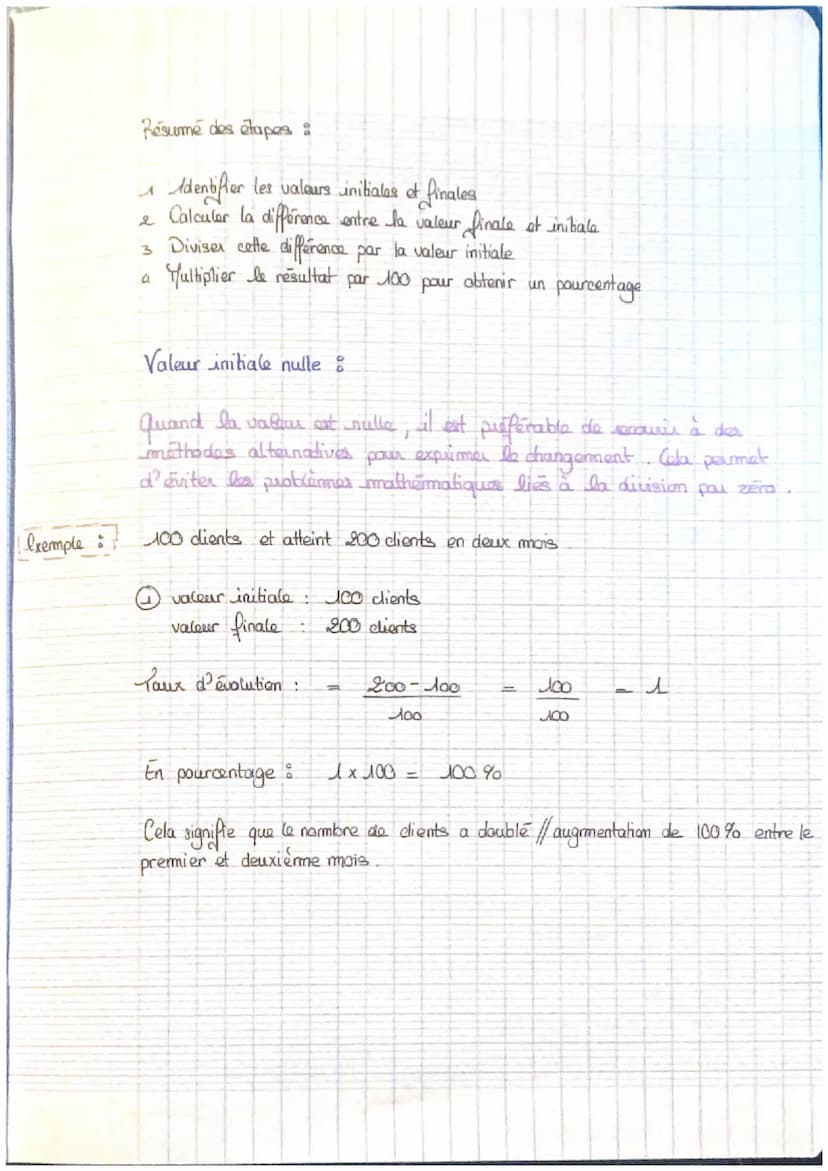 Résumé des étapes :
1 Identifier les valeurs initiales et finales
2 Calculer la différence entre la valeur finale et initiale
3 Diviser cette différence par la valeur initiale
4 Multiplier le résultat par 100 pour obtenir un pourcentage
Valeur initiale nulle :
Quand la valeur est nulle, il est préférable de recourir à des
méthodes alternatives pour exprimer le changement. Cela permet
d'éviter les problèmes mathématiques liés à la division par zéro.
Exemple : 100 clients et atteint 200 clients en deux mois
① valeur initiale : 100 clients
valeur finale : 200 clients
Taux d'évolution : = 200 - 100 / 100 = 100 / 100 = 1
En pourcentage : 1 x 100 = 100 %
Cela signifie que le nombre de clients a doublé // augmentation de 100 % entre le
premier et deuxième mois.